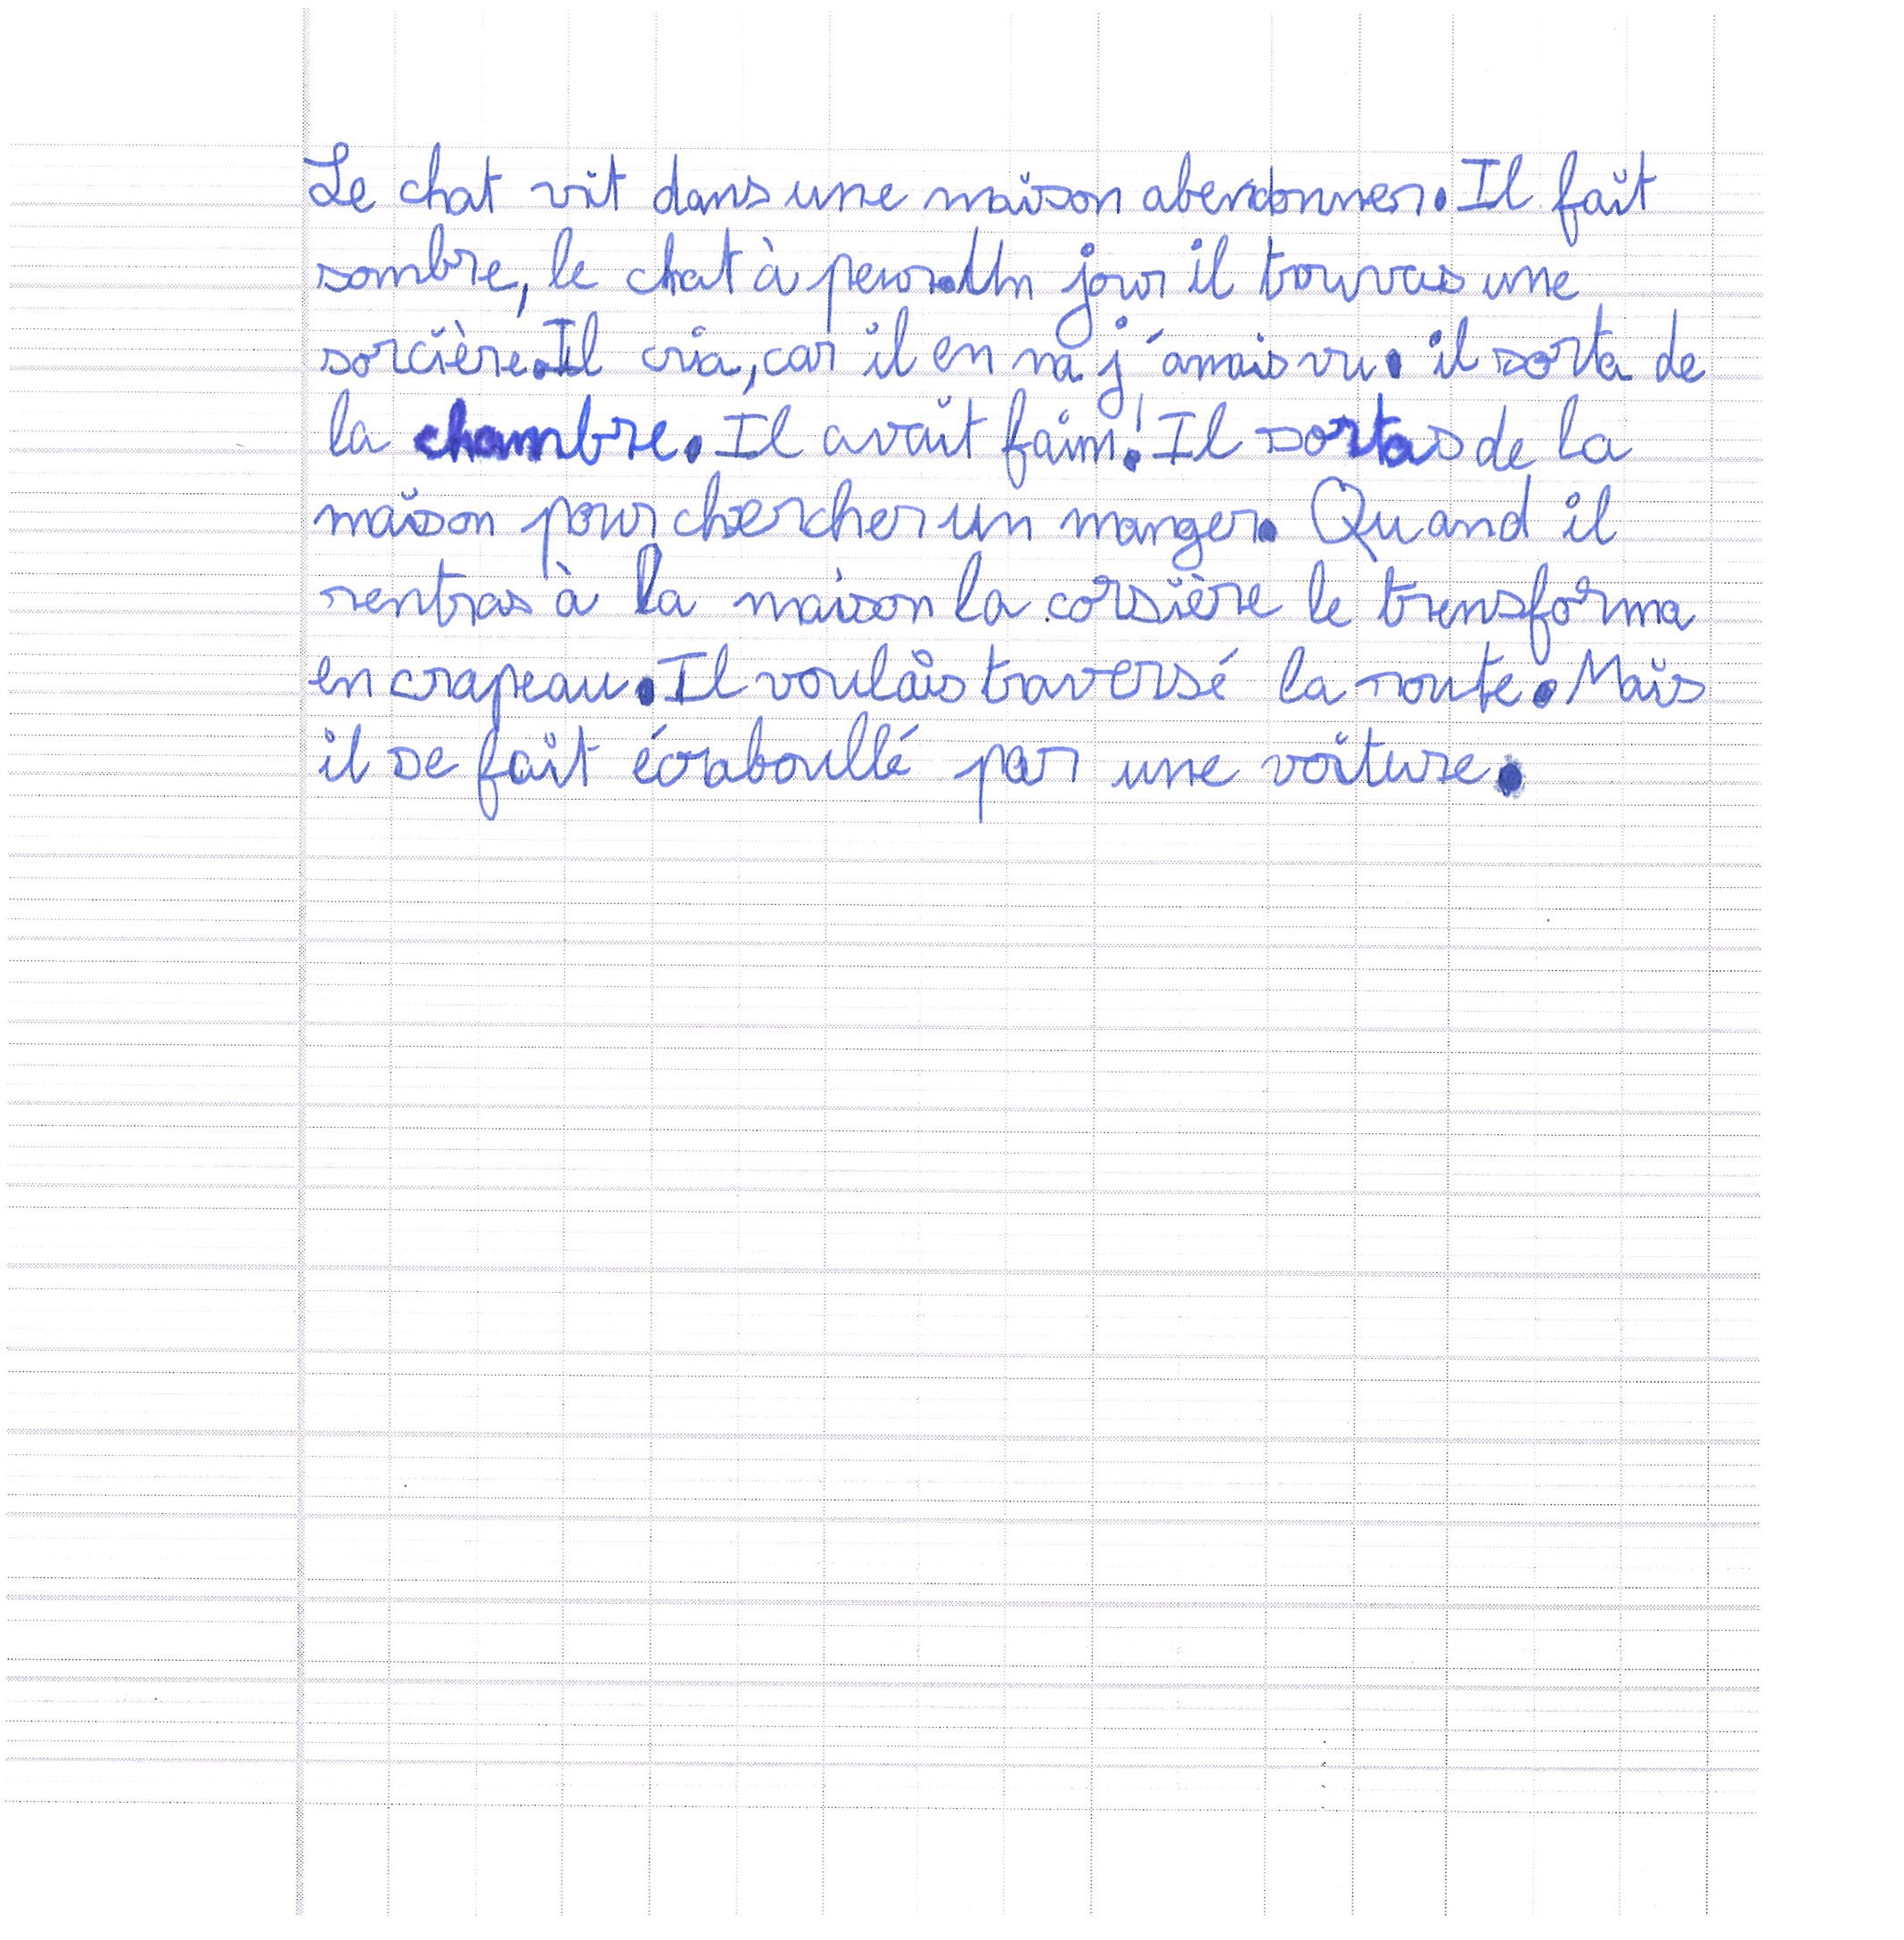 Le chat vit dans une maison abendonner. Il fait
sombre, le chat à peur. Un jour il trouvas une
sorcière. Il cria, car il en na j'amais vu. il sorta de
la chambre. Il avait faim! Il sortas de la
maison pour chercher un manger. Quand il
rentras à la maison la corsière le trensforma
en crapeau. Il voulais traversé la route. Mais
il se fait écraboullé par une voiture.